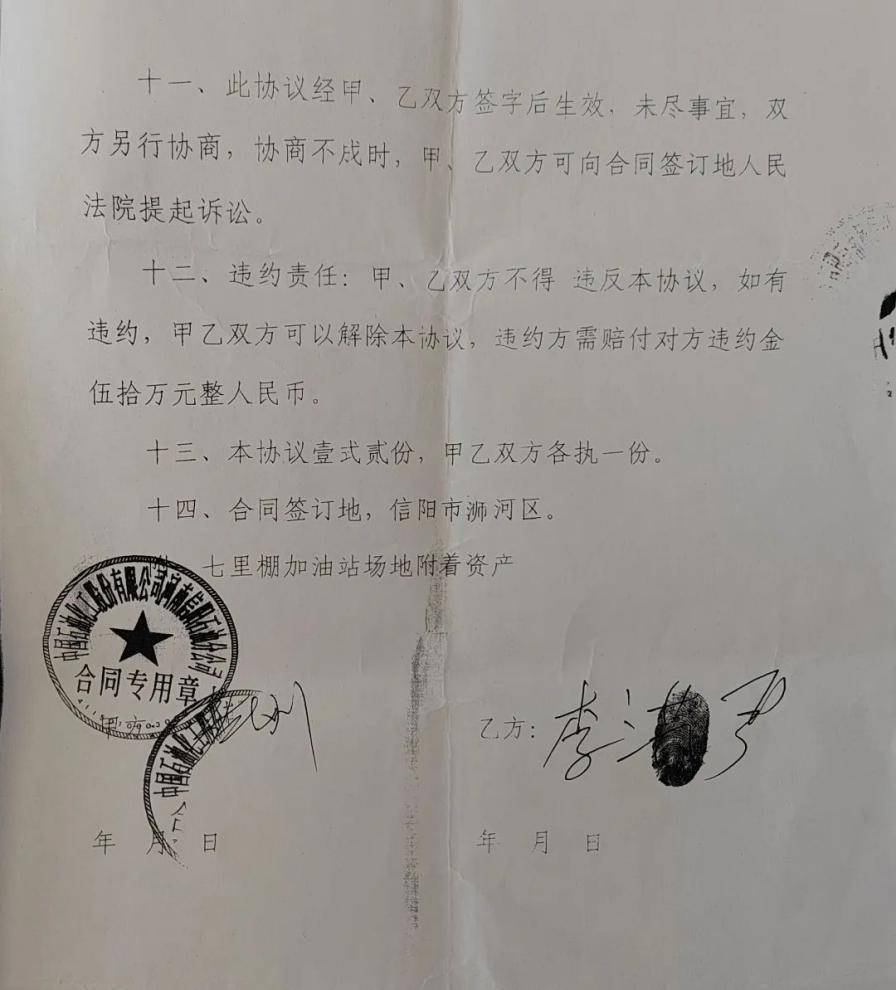 十一、此协议经甲、乙双方签字后生效，未尽事宜，双
方另行协商，协商不成时，甲、乙双方可向合同签订地人民
法院提起诉讼。
十二、违约责任：甲、乙双方不得 违反本协议，如有
违约，甲乙双方可以解除本协议，违约方需赔付对方违约金
伍拾万元整人民币。
十三、本协议壹式贰份，甲乙双方各执一份。
十四、合同签订地，信阳市浉河区。
七里棚加油站场地附着资产
中国石油化工股份有限公司河南信阳石油分公司
合同专用章
甲方
乙方：李
年 月 日
年 月 日
中国石油化工
合